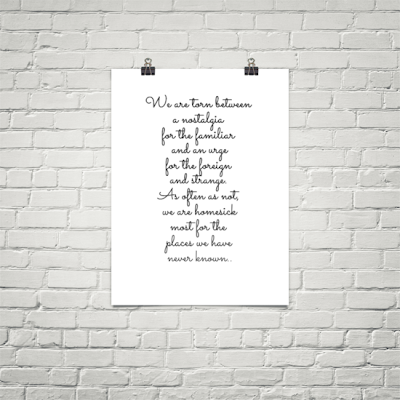 We are torn between
a nostalgia
for the familiar
and an urge
for the foreign
and strange.
As often as not,
we are homesick
most for the
places we have
never known..